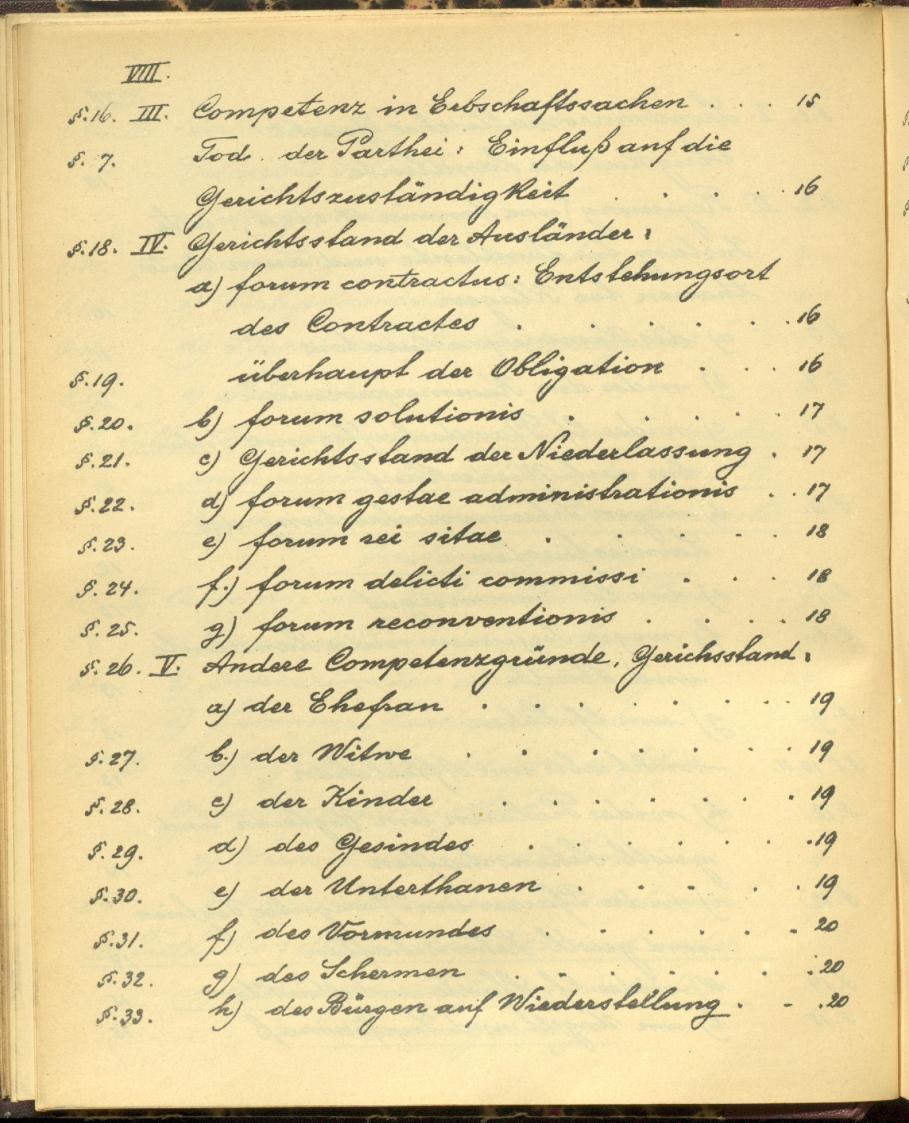 VIII.
§.16. III. Competenz in Erbschaftssachen . . . 15
§. 7. Tod. der Parthei: Einfluß auf die
Gerichtszuständigkeit . . . . 16
§.18. IV. Gerichtsstand der Ausländer:
a) forum contractus: Entstehungsort
des Contractes . . . . . . 16
§.19. überhaupt der Obligation . . . 16
§.20. b) forum solutionis . . . . . 17
§.21. c) Gerichtsstand der Niederlassung . 17
§.22. d) forum gestae administrationis . . 17
§.23. e) forum rei sitae . . . . . 18
§.24. f.) forum delicti commissi . . . 18
§.25. g) forum reconventionis . . . . 18
§.26. V. Andere Competenzgründe, Gerichsstand:
a) der Ehefrau . . . . . . . . 19
§.27. b.) der Witwe . . . . . . . 19
§.28. c) der Kinder . . . . . . . 19
§.29. d) des Gesindes . . . . . . . 19
§.30. e) der Unterthanen . . . . . 19
§.31. f) des Vormundes . . . . . . 20
§.32. g) des Schermen . . . . . . . 20
§.33. h) des Bürgen auf Wiederstellung . . . 20